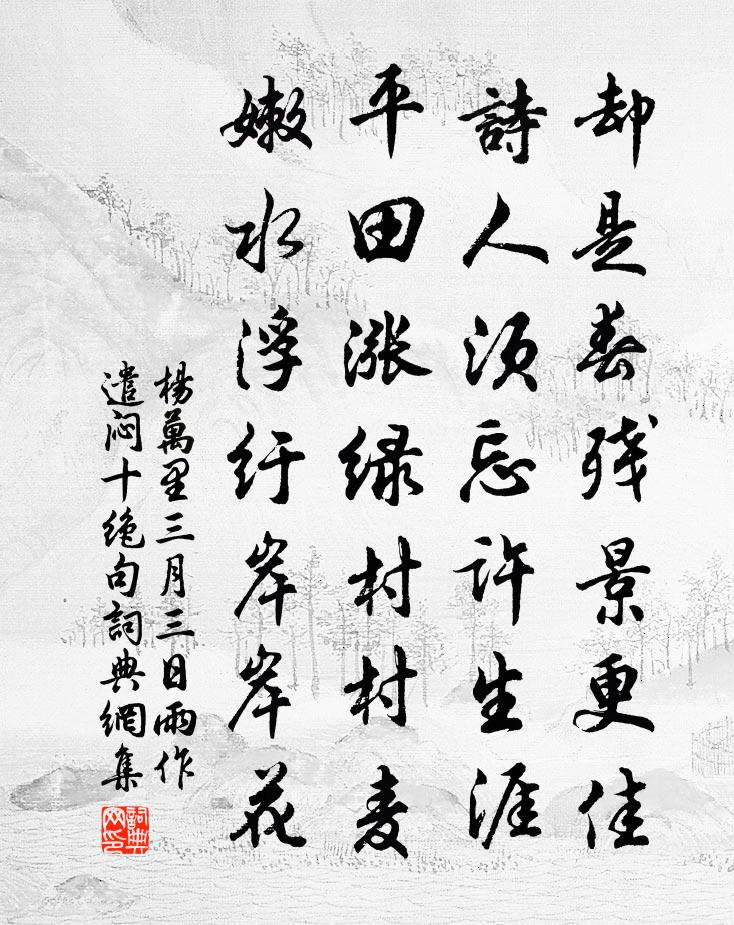 却是春残景更佳
詩人须忘許生涯
平田涨绿村村麦
嫩水浮紆岸岸花
楊萬里三月三日雨作
遣闷十绝句詞典網集
詞典
网印